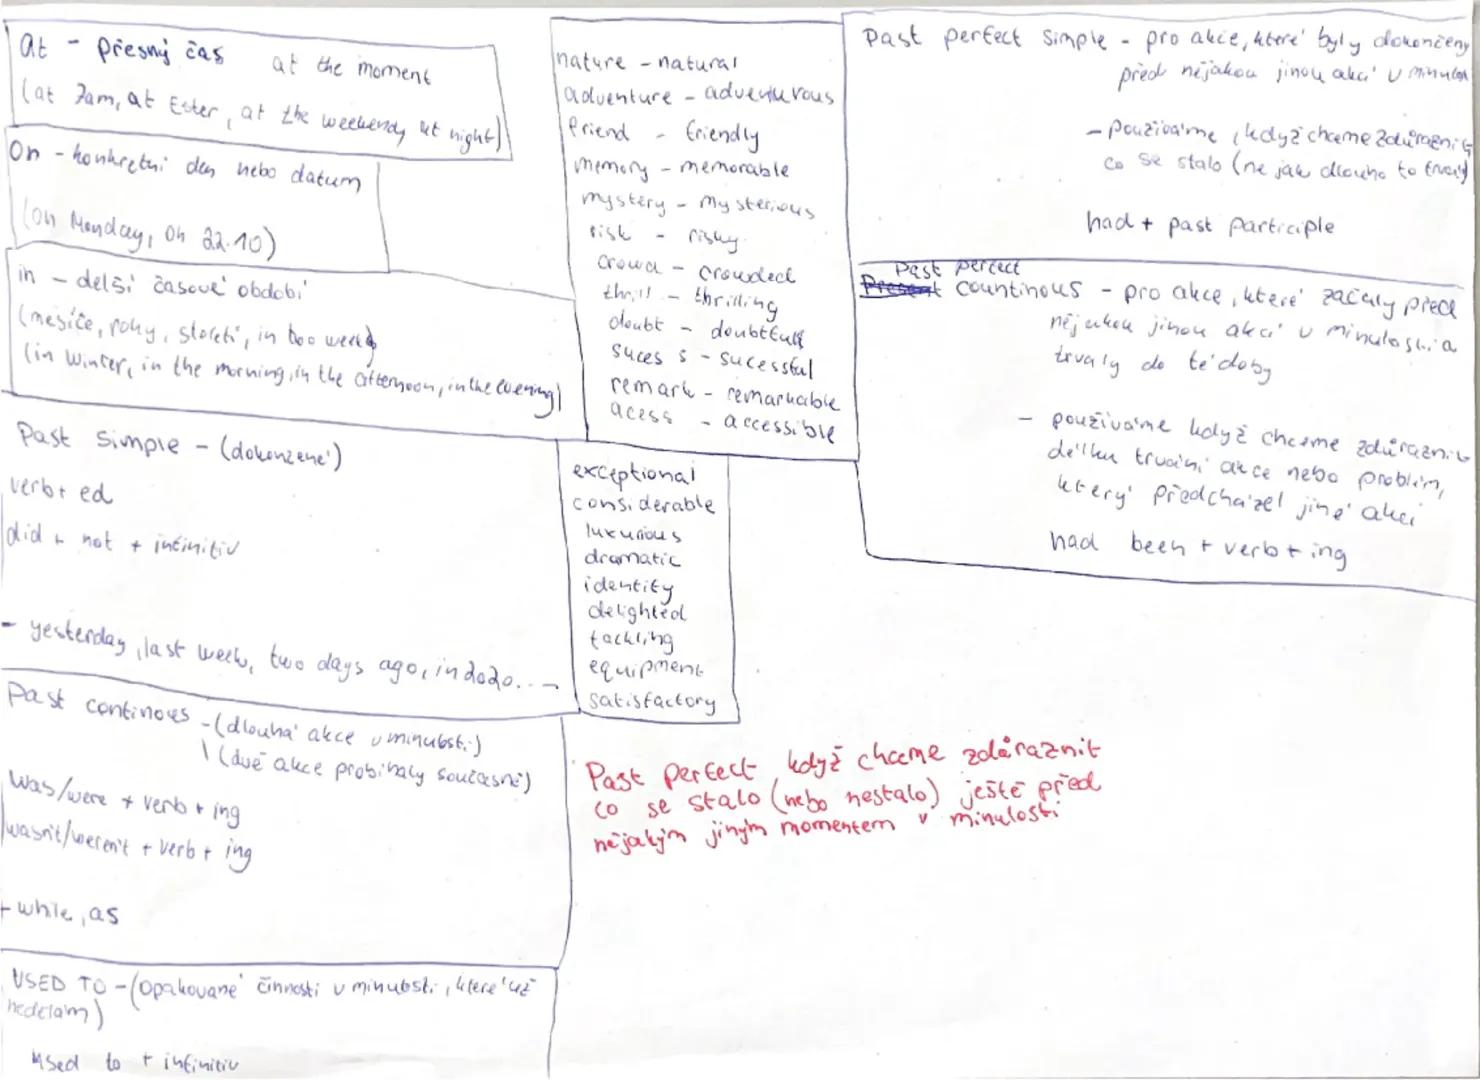 at - přesný čas at the moment
(at 7am, at Ester, at the weekend, at night)
On - konkrétní den nebo datum
(on Monday, on 22.10)
in - delší časové období
(měsíce, roky, století, in two weeks)
(in winter, in the morning, in the afternoon, in the evening)
Past simple - (dokončené)
verb + ed
did + not + infinitiv
- yesterday, last week, two days ago, in 2020...
Past continoues - (dlouhá akce v minulosti)
\ (dvě akce probíhaly současně)
was/were + verb + ing
wasn't/weren't + verb + ing
+ while, as
USED TO - (opakované činnosti v minulosti, které už
nedělám)
used to + infinitiv
nature - natural
adventure - adventurous
friend - friendly
memory - memorable
mystery - mysterious
risk - risky
crowd - crowded
thrill - thrilling
doubt - doubtfull
suces s - sucessful
remark - remarkable
acess - accessible
exceptional
considerable
luxurious
dramatic
identity
delighted
tackling
equipment
satisfactory
Past perfect simple - pro akce, které byly dokončeny
před nějakou jinou akcí v minulosti
- Používáme, když chceme zdůraznit
co se stalo (ne jak dlouho to trvalo)
had + past participle
Past perfect
Present countinous - pro akce, které začaly před
nějakou jinou akcí v minulosti a
trvaly do té doby
- používáme když chceme zdůraznit
délku trvání akce nebo problém,
který předcházel jiné akci
had been + verb + ing
Past perfect když chceme zdůraznit
co se stalo (nebo nestalo) ještě před
nějakým jiným momentem v minulosti